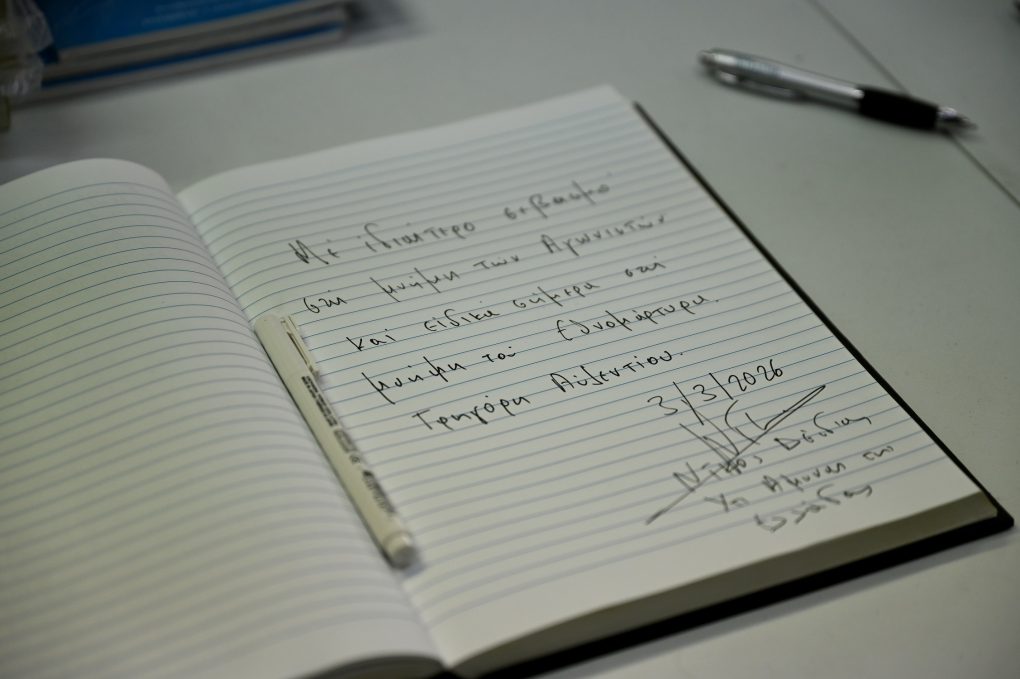 Με ιδιαίτερο σεβασμό
στη μνήμη των Αγωνιστών
και ειδικά σήμερα στη
μνήμη του Εθνομάρτυρα
Γρηγόρη Αυξεντίου.
3/3/2026
Νίκος Δένδιας
Υπ Αμυνας της
Ελλάδας